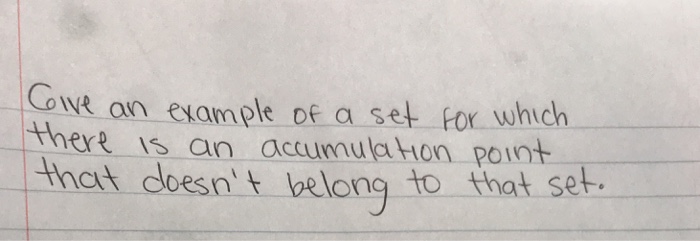 Give an example of a set for which
there is an accumulation point
that doesn't belong to that set.